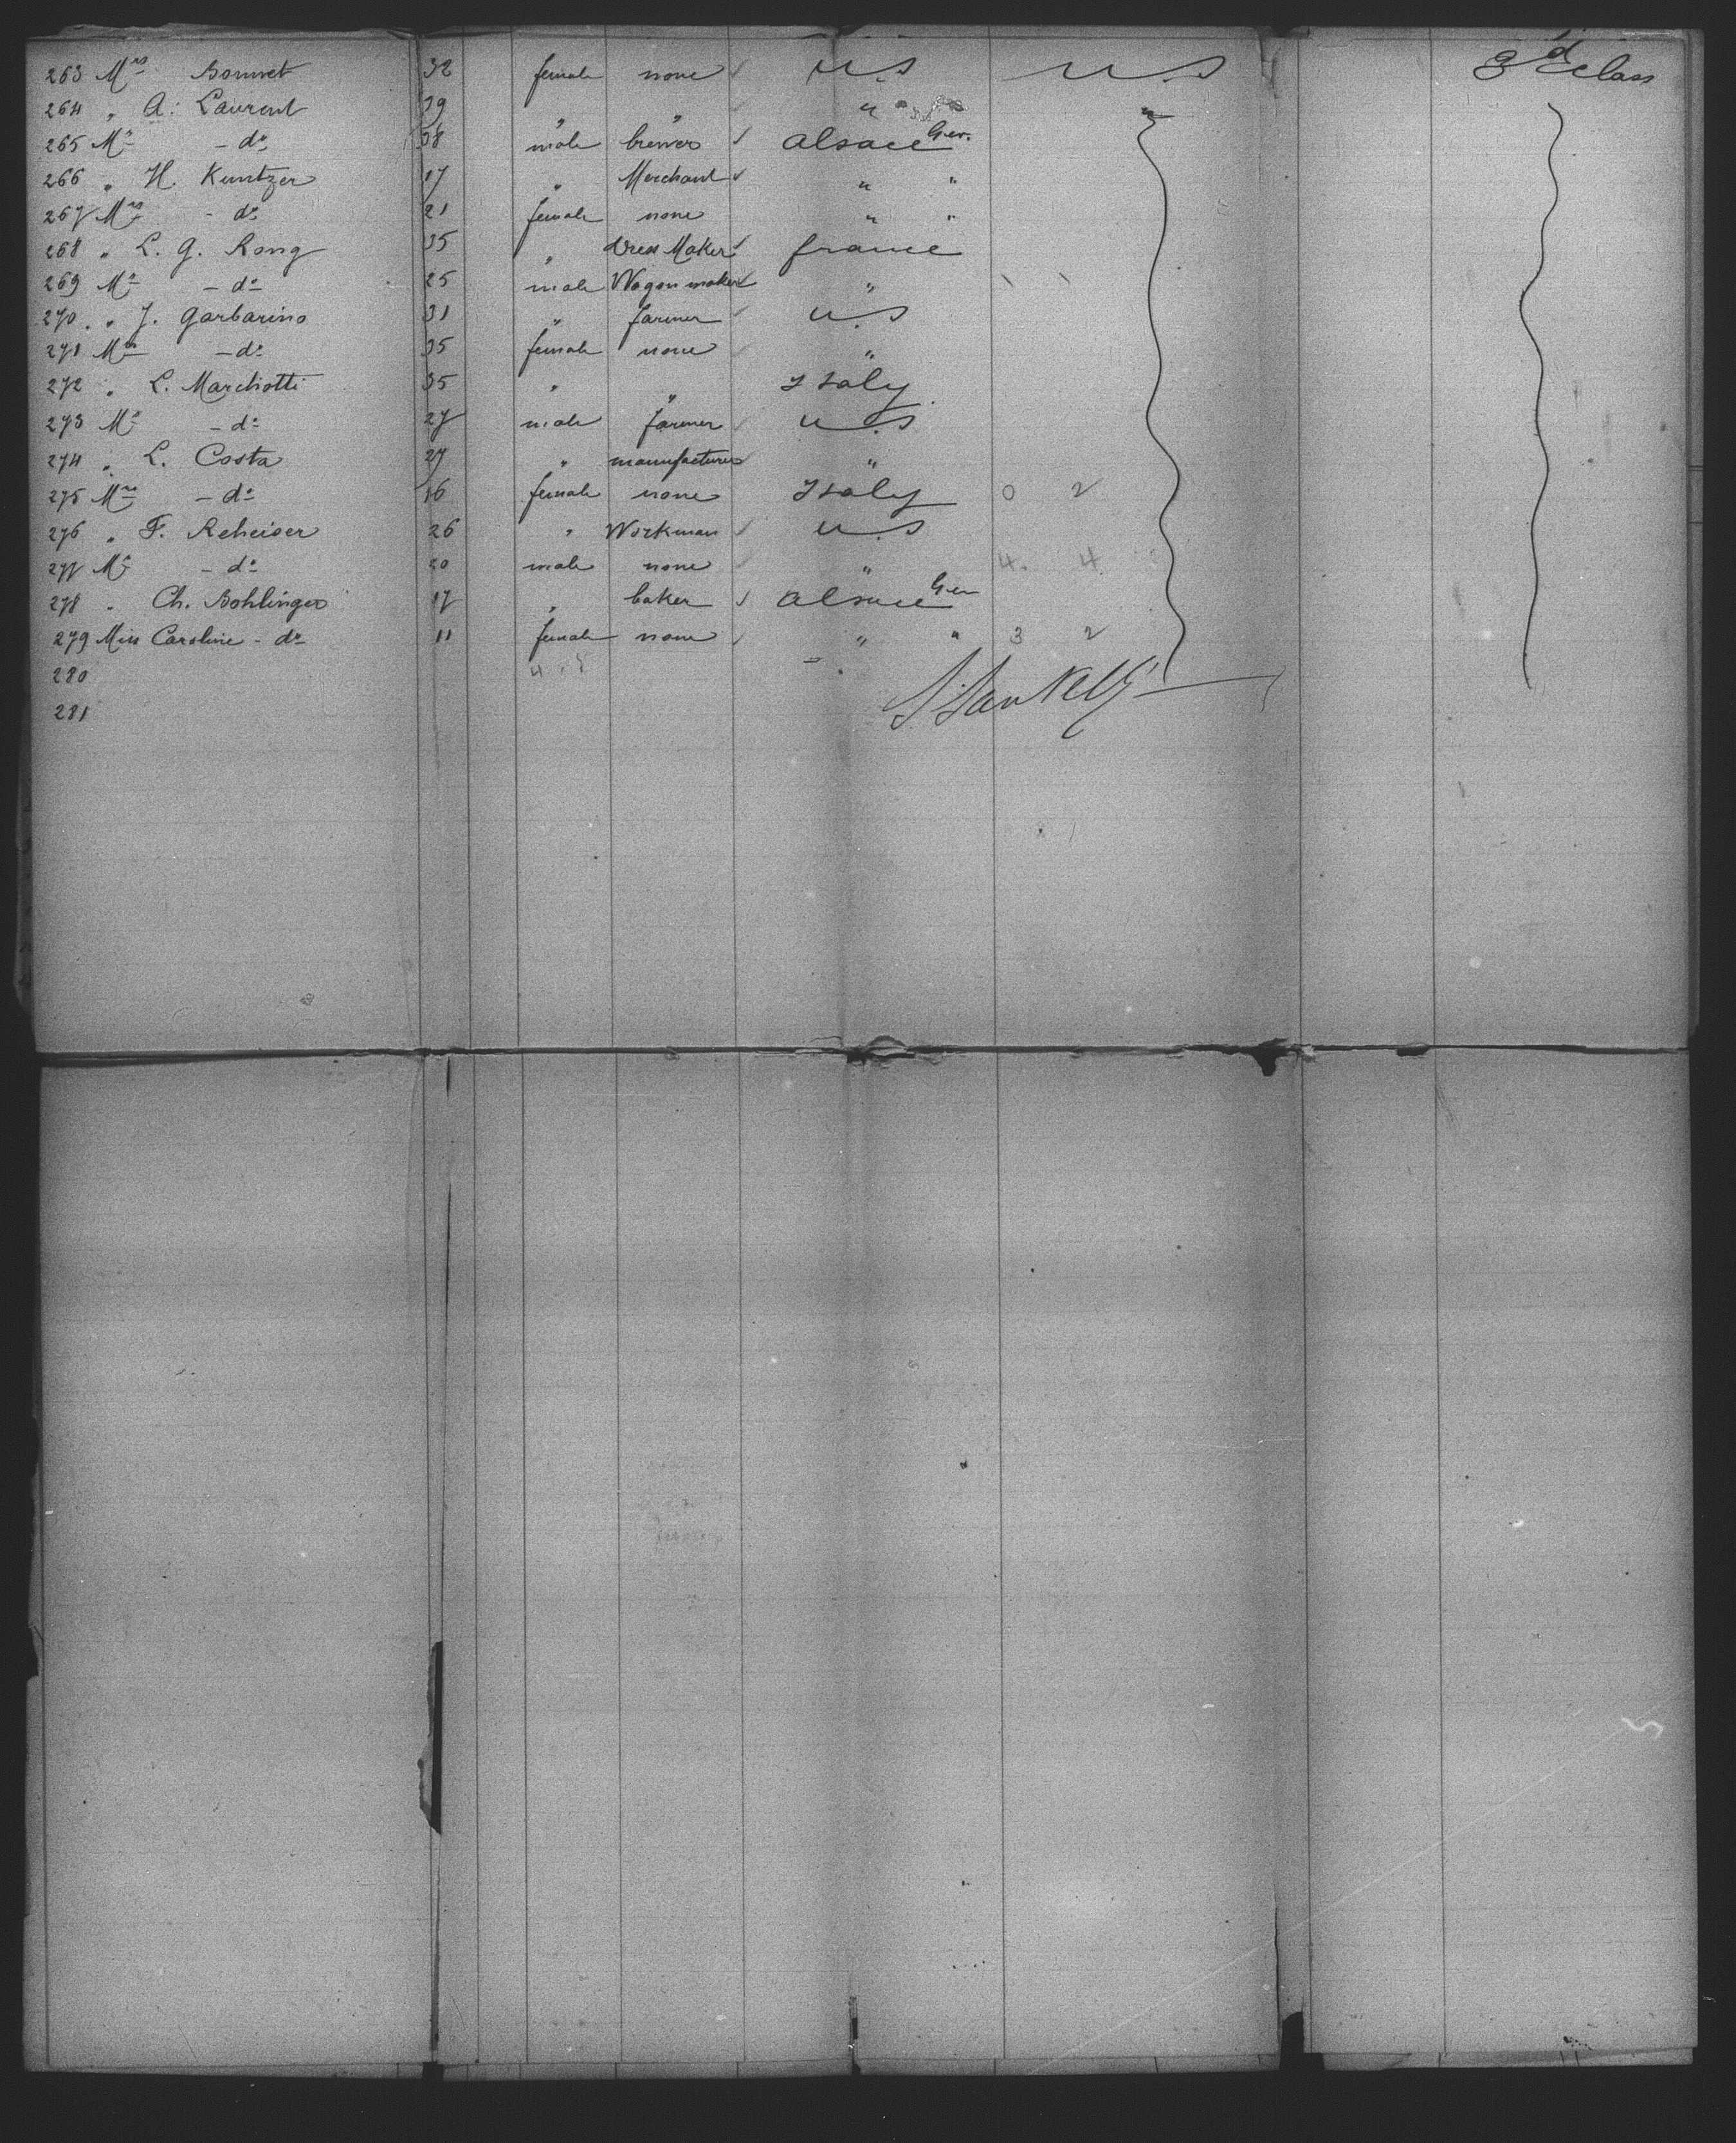 263 Mrs Bonnet 32 female none ✓ U.S U.S 3d class
264 " A. Laurent 39 " " ✓ " "
265 Mr - do - 38 male brewer ✓ Alsace Ger.
266 " H. Kuntzer 17 " Merchant ✓ " "
267 Mrs - do - 21 female none " "
268 " L. G. Rong 35 " Dress Maker ✓ france
269 Mr - do - 25 male Wagon maker ✓ "
270 " J. Garbarino 31 " farmer ✓ U.S
271 Mrs - do - 35 female none ✓ "
272 " L. Marchotti 35 " " Italy
273 Mr - do - 27 male farmer ✓ U.S
274 " L. Costa 27 " manufacturer "
275 Mrs - do - 16 female none Italy 0 2
276 " F. Reheiser 26 " Workman ✓ U.S
277 Mr - do - 20 male none ✓ " 4. 4
278 " Ch. Bohlinger 17 " baker ✓ Alsace Ger
279 Miss Caroline - do - 11 female none ✓ " " 3 2
280
281